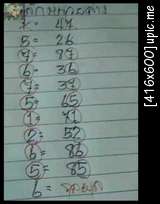 7 = 47
5 = 26
9 = 89
6 = 36
7 = 37
5 = 65
1 = 71
2 = 52
6 = 86
5 = 85
6 =
[416x600] upic.me